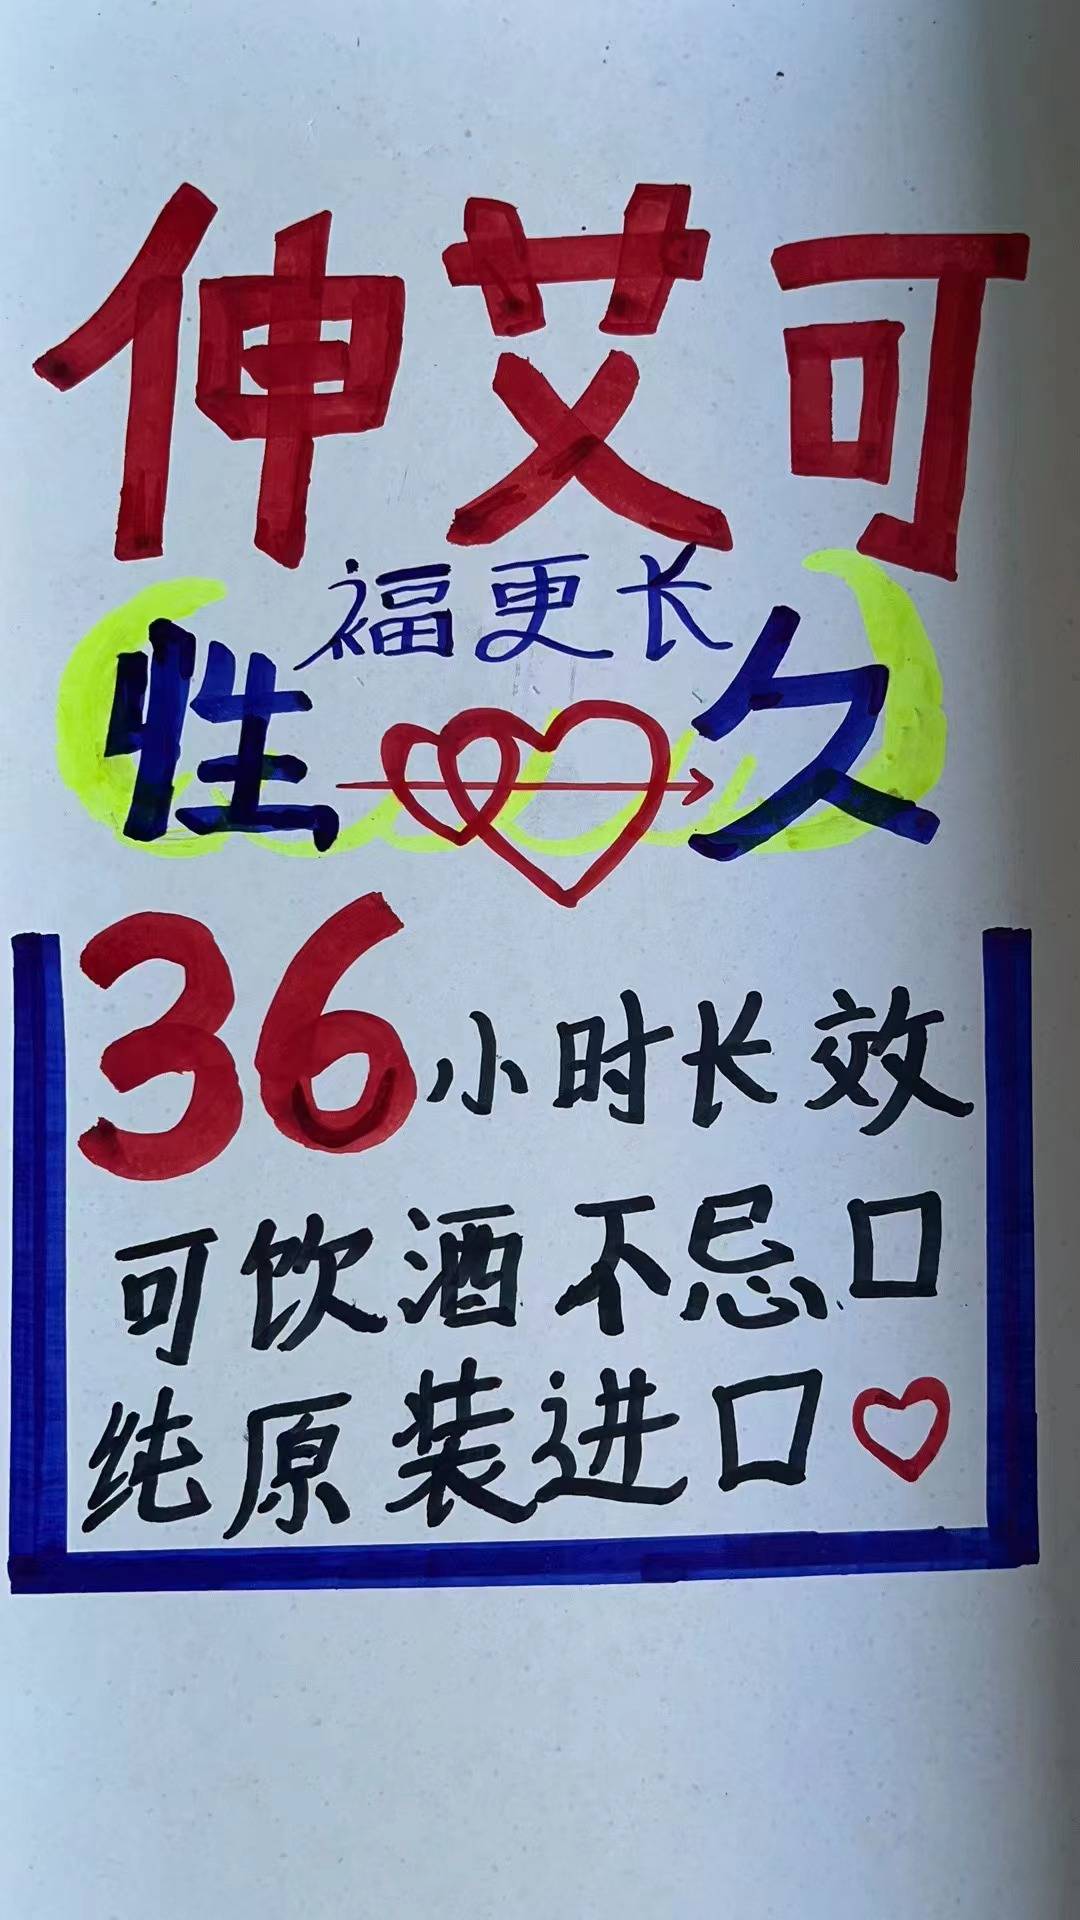 伸艾可
福更长
性 久
36小时长效
可饮酒不忌口
纯原装进口